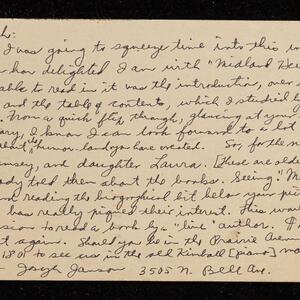 I was going to squeeze time into this
how delighted I am with "Midland
able to read in it was the introduction, over
and the table of contents, which I studied
From a quick flip through, glancing at your
I know I can look forward to a lot
human-land you have created. So, for the
and daughter Laura. [These are older
told them about the books. Seeing "M
and reading the biographical bit below your
has really piqued their interest. This
to read a book by a "live" author.
again. Should you be in the Prairie Avenue
1801 to see us in the old Kimball [piano]
Joseph 3505 N. Bell Ave.